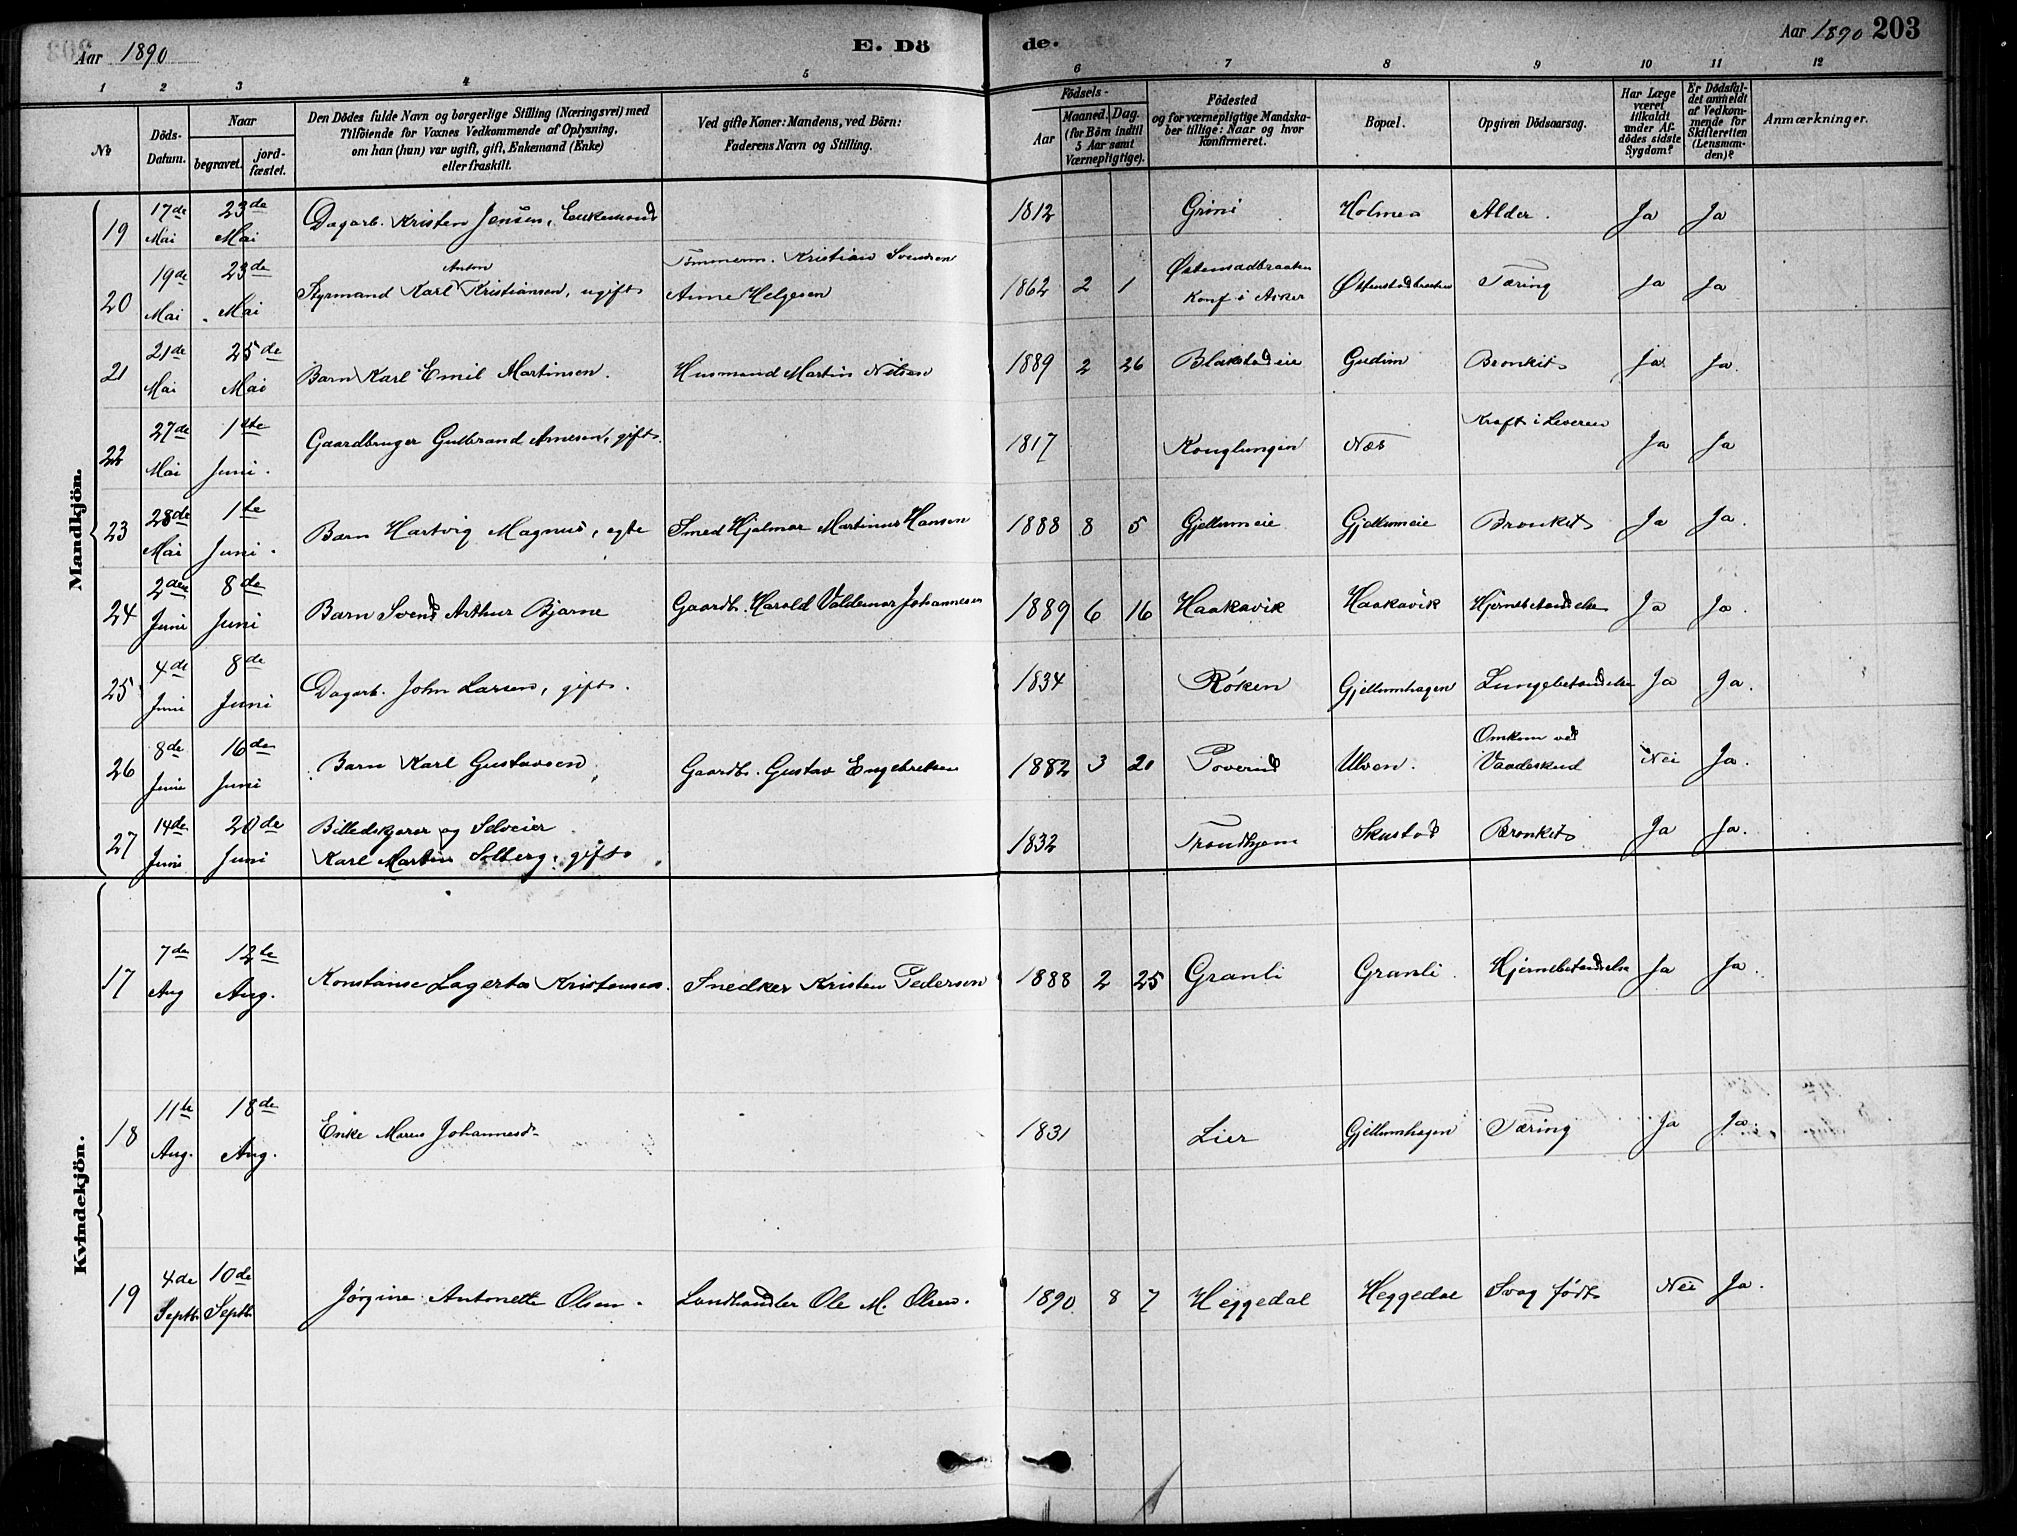 Aar 1890
E. Dö
de.
Aar 1890 203
1 2 3 4 5 6 7 8 9 10 11 12
№
Döds-Datum.
Naar
begravet.
jordfæstet.
Den Dödes fulde Navn og borgerlige Stilling (Næringsvei) med
Tilföiende for Voxnes Vedkommende af Oplysning,
om han (hun) var ugift, gift, Enkemand (Enke)
eller fraskilt.
Ved gifte Koner: Mandens, ved Börn:
Faderens Navn og Stilling.
Födsels-
Aar
Maaned. Dag.
(for Börn indtil
5 Aar samt
Værnepligtige).
Födested
og for værnepligtige Mandska-
ber tillige: Naar og hvor
konfirmeret.
Bopæl.
Opgiven Dödsaarsag.
Har Læge
været
tilkaldt
under Af-
dödes sidste
Sygdom?
Er Dödsfal-
det anmeldt
af Vedkom-
mende for
Skifteretten
(Lensman-
den)?
Anmærkninger.
Mandkjön.
19 17de Mai 23de Mai Dagarb. Kristen Jensen, Enkemand 1812 Grini Holmen Alder. Ja Ja
20 19de Mai 23de Mai Styrmand Karl Anton Kristiansen, ugift Tömmerm. Kristian Svendsen
Anne Helgesen 1862 2 1 Østensadbraaten
Konf i Asker Østenstadbraaten Tæring Ja Ja
21 21de Mai 25de Mai Barn Karl Emil Martinsen. Husmand Martin Nilsen 1889 2 26 Blakstadeie Gudim Bronkit Ja. Ja.
22 27de Mai 1ste Juni. Gaardbruger Gulbrand Arnesen, gift. 1817 Konglungen Næs Kræft i Leveren Ja Ja
23 28de Mai 1te Juni. Barn Hartvig Magnus, egte Smed Hjalmar Martinus Hansen 1888 8 5 Gjellumeie Gjellumeie Bronkit Ja Ja.
24 2den Juni 8de Juni Barn Svend Arthur Bjarne Gaardb. Harald Valdemar Johannesen 1889 6 16 Haakavik Haakavik Hjernebetændelse Ja Ja.
25 4de Juni 8de Juni Dagarb. John Larsen, gift. 1834 Röken Gjellumhagen Lungebetændelse Ja Ja.
26 8de Juni 16de Juni Barn Karl Gustavsen Gaardb. Gustav Engebretsen 1882 3 21 Poverud Ulven. Omkom ved
Vaadeskud Nei Ja.
27 14de Juni 20de Juni Billedskjærer og Selveier
Karl Martin Solberg, gift. 1832 Trondhjem Skustad Bronkit Ja Ja.
Kvindekjön.
17 7de Aug 12te Aug. Konstanse Lagerta Kristensen. Snedker Kristen Pedersen 1888 2 25 Granli Granli. Hjernebetændelse Ja Ja.
18 11te Aug. 18de Aug. Enke Maren Johannesd. 1831 Lier Gjellumhagen Tæring Ja Ja.
19 4de Septb. 10de Septb. Jörgine Antonette Olsen. Landhandler Ole M. Olsen. 1890. 8 7 Heggedal Heggedal Svag födt Nei Ja.